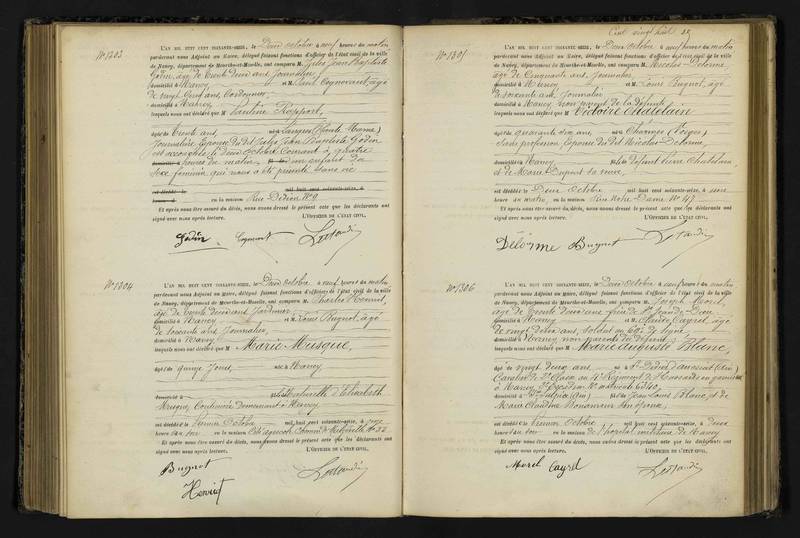 N° 1303
L'AN MIL HUIT CENT SOIXANTE-SEIZE, le Deux octobre à neuf heures du matin
pardevant nous Adjoint au Maire, délégué faisant fonctions d'officier de l'état civil de la ville
de Nancy, département de Meurthe-et-Moselle, ont comparu M. Jules Jean Baptiste
Godin, âgé de trente deux ans Journalier,
domicilié à Nancy et M. Paul Cognomont, âgé
de vingt cinq ans Cordonnier
domicilié à Nancy
lesquels nous ont déclaré que M Pauline Rapport,
âgée de trente ans, née à Langres (Haute Marne)
Journalière Epouse du dit Jules Jean Baptiste Godin
est accouchée le deux Octobre Courant à quatre
heures du matin, d'un enfant du
Sexe féminin qui nous a été présenté sans vie
est décédé le mil huit cent soixante-seize, à
heures d en la maison Rue N° 9
Et après nous être assuré du décès, nous avons dressé le présent acte que les déclarants ont
signé avec nous après lecture. L'OFFICIER DE L'ÉTAT CIVIL,
Godin
N° 1304
L'AN MIL HUIT CENT SOIXANTE-SEIZE, le Deux octobre à neuf heures du matin
pardevant nous Adjoint au Maire, délégué faisant fonctions d'officier de l'état civil de la ville
de Nancy, département de Meurthe-et-Moselle, ont comparu M. Charles Henriot,
âgé de trente deux ans Jardinier
domicilié à Nancy et M. Louis Bugnot, âgé
de soixante ans Journalier,
domicilié à Nancy
lesquels nous ont déclaré que M Marie Musque,
âgée de quinze jours, née à Nancy
domiciliée à fille naturelle d'Elisabeth
Musque, Couturière demeurant à Nancy
est décédée le Premier Octobre mil huit cent soixante-seize, à
heures du soir en la maison N° 32
Et après nous être assuré du décès, nous avons dressé le présent acte que les déclarants ont
signé avec nous après lecture. L'OFFICIER DE L'ÉTAT CIVIL,
Bugnot
Henriot
Cent vingt huit
N° 1305
L'AN MIL HUIT CENT SOIXANTE-SEIZE, le Deux octobre à neuf heures du matin
pardevant nous Adjoint au Maire, délégué faisant fonctions d'officier de l'état civil de la ville
de Nancy, département de Meurthe-et-Moselle, ont comparu M. Nicolas Delorme,
âgé de Cinquante ans, Journalier
domicilié à Nancy et M. Louis Bugnot, âgé
de soixante ans Journalier
domicilié à Nancy, non parent de la défunte
lesquels nous ont déclaré que M Victoire Chatelain
âgée de quarante six ans, née à Charmes (Vosges)
Sans profession, Epouse du dit Nicolas Delorme,
domiciliée à Nancy fille de défunt Chatelain
et de Marie Dupont sa veuve,
est décédée le Deux Octobre mil huit cent soixante-seize, à une
heure du matin, en la maison Rue Notre-Dame N° 47
Et après nous être assuré du décès, nous avons dressé le présent acte que les déclarants ont
signé avec nous après lecture. L'OFFICIER DE L'ÉTAT CIVIL,
Délorme Bugnot
N° 1306
L'AN MIL HUIT CENT SOIXANTE-SEIZE, le Deux octobre à neuf heures du matin
pardevant nous Adjoint au Maire, délégué faisant fonctions d'officier de l'état civil de la ville
de Nancy, département de Meurthe-et-Moselle, ont comparu M. Joseph Morel,
âgé de trente deux ans
domicilié à Nancy et M. Claude Cayrel, âgé
de vingt deux ans, soldat au de ligne,
domicilié à Nancy non parents du défunt
lesquels nous ont déclaré que M Marie Auguste Blanc,
âgé de vingt deux ans né à (Ain)
Cavalier de 2e Classe au 4e Régiment de Hussards en garnison
à Nancy, Escadron N° matricule
domicilié à St Sulpice (Ain) fils de Jean Louis Blanc et de
Marie Claudine son épouse,
est décédé le Premier Octobre mil huit cent soixante-seize, à deux
heures du soir en la maison de l'hôpital militaire de Nancy
Et après nous être assuré du décès, nous avons dressé le présent acte que les déclarants ont
signé avec nous après lecture. L'OFFICIER DE L'ÉTAT CIVIL,
Morel Cayrel